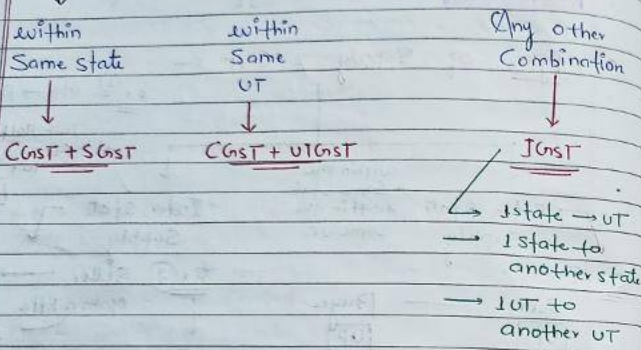 within
Same state
CGST + SGST
within
Same
UT
CGST + UTGST
Any other
Combination
IGST
1 state → UT
→ 1 state to
another state
→ 1 UT to
another UT